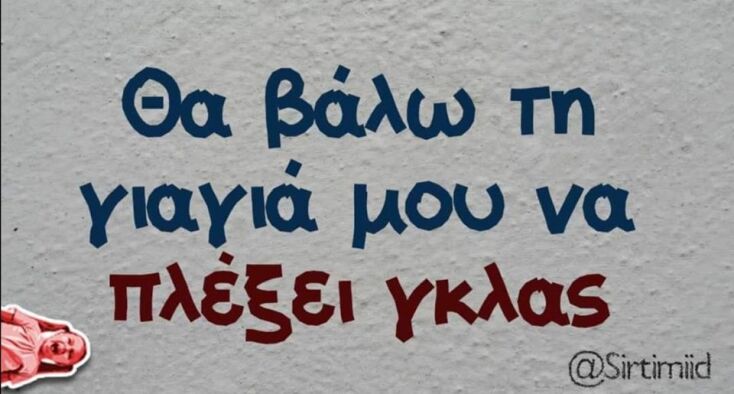 Θα βάλω τη
γιαγιά μου να
πλέξει γκλας
@Sirtimiid